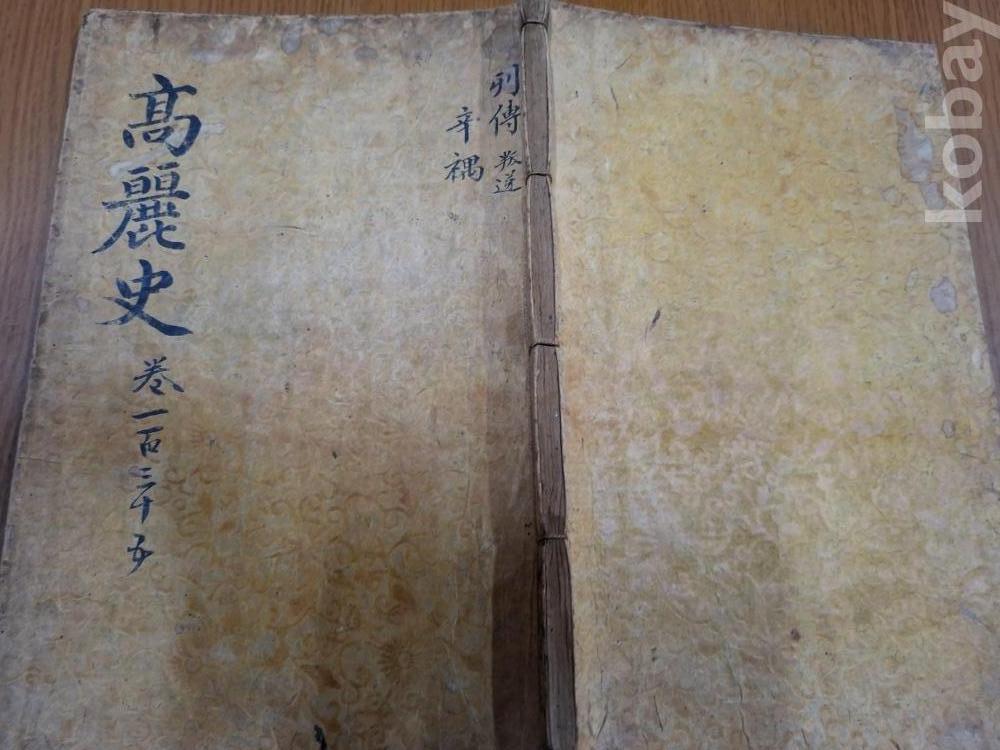 高麗史 卷一百三十五
列傳 叛逆
辛禑
kobay